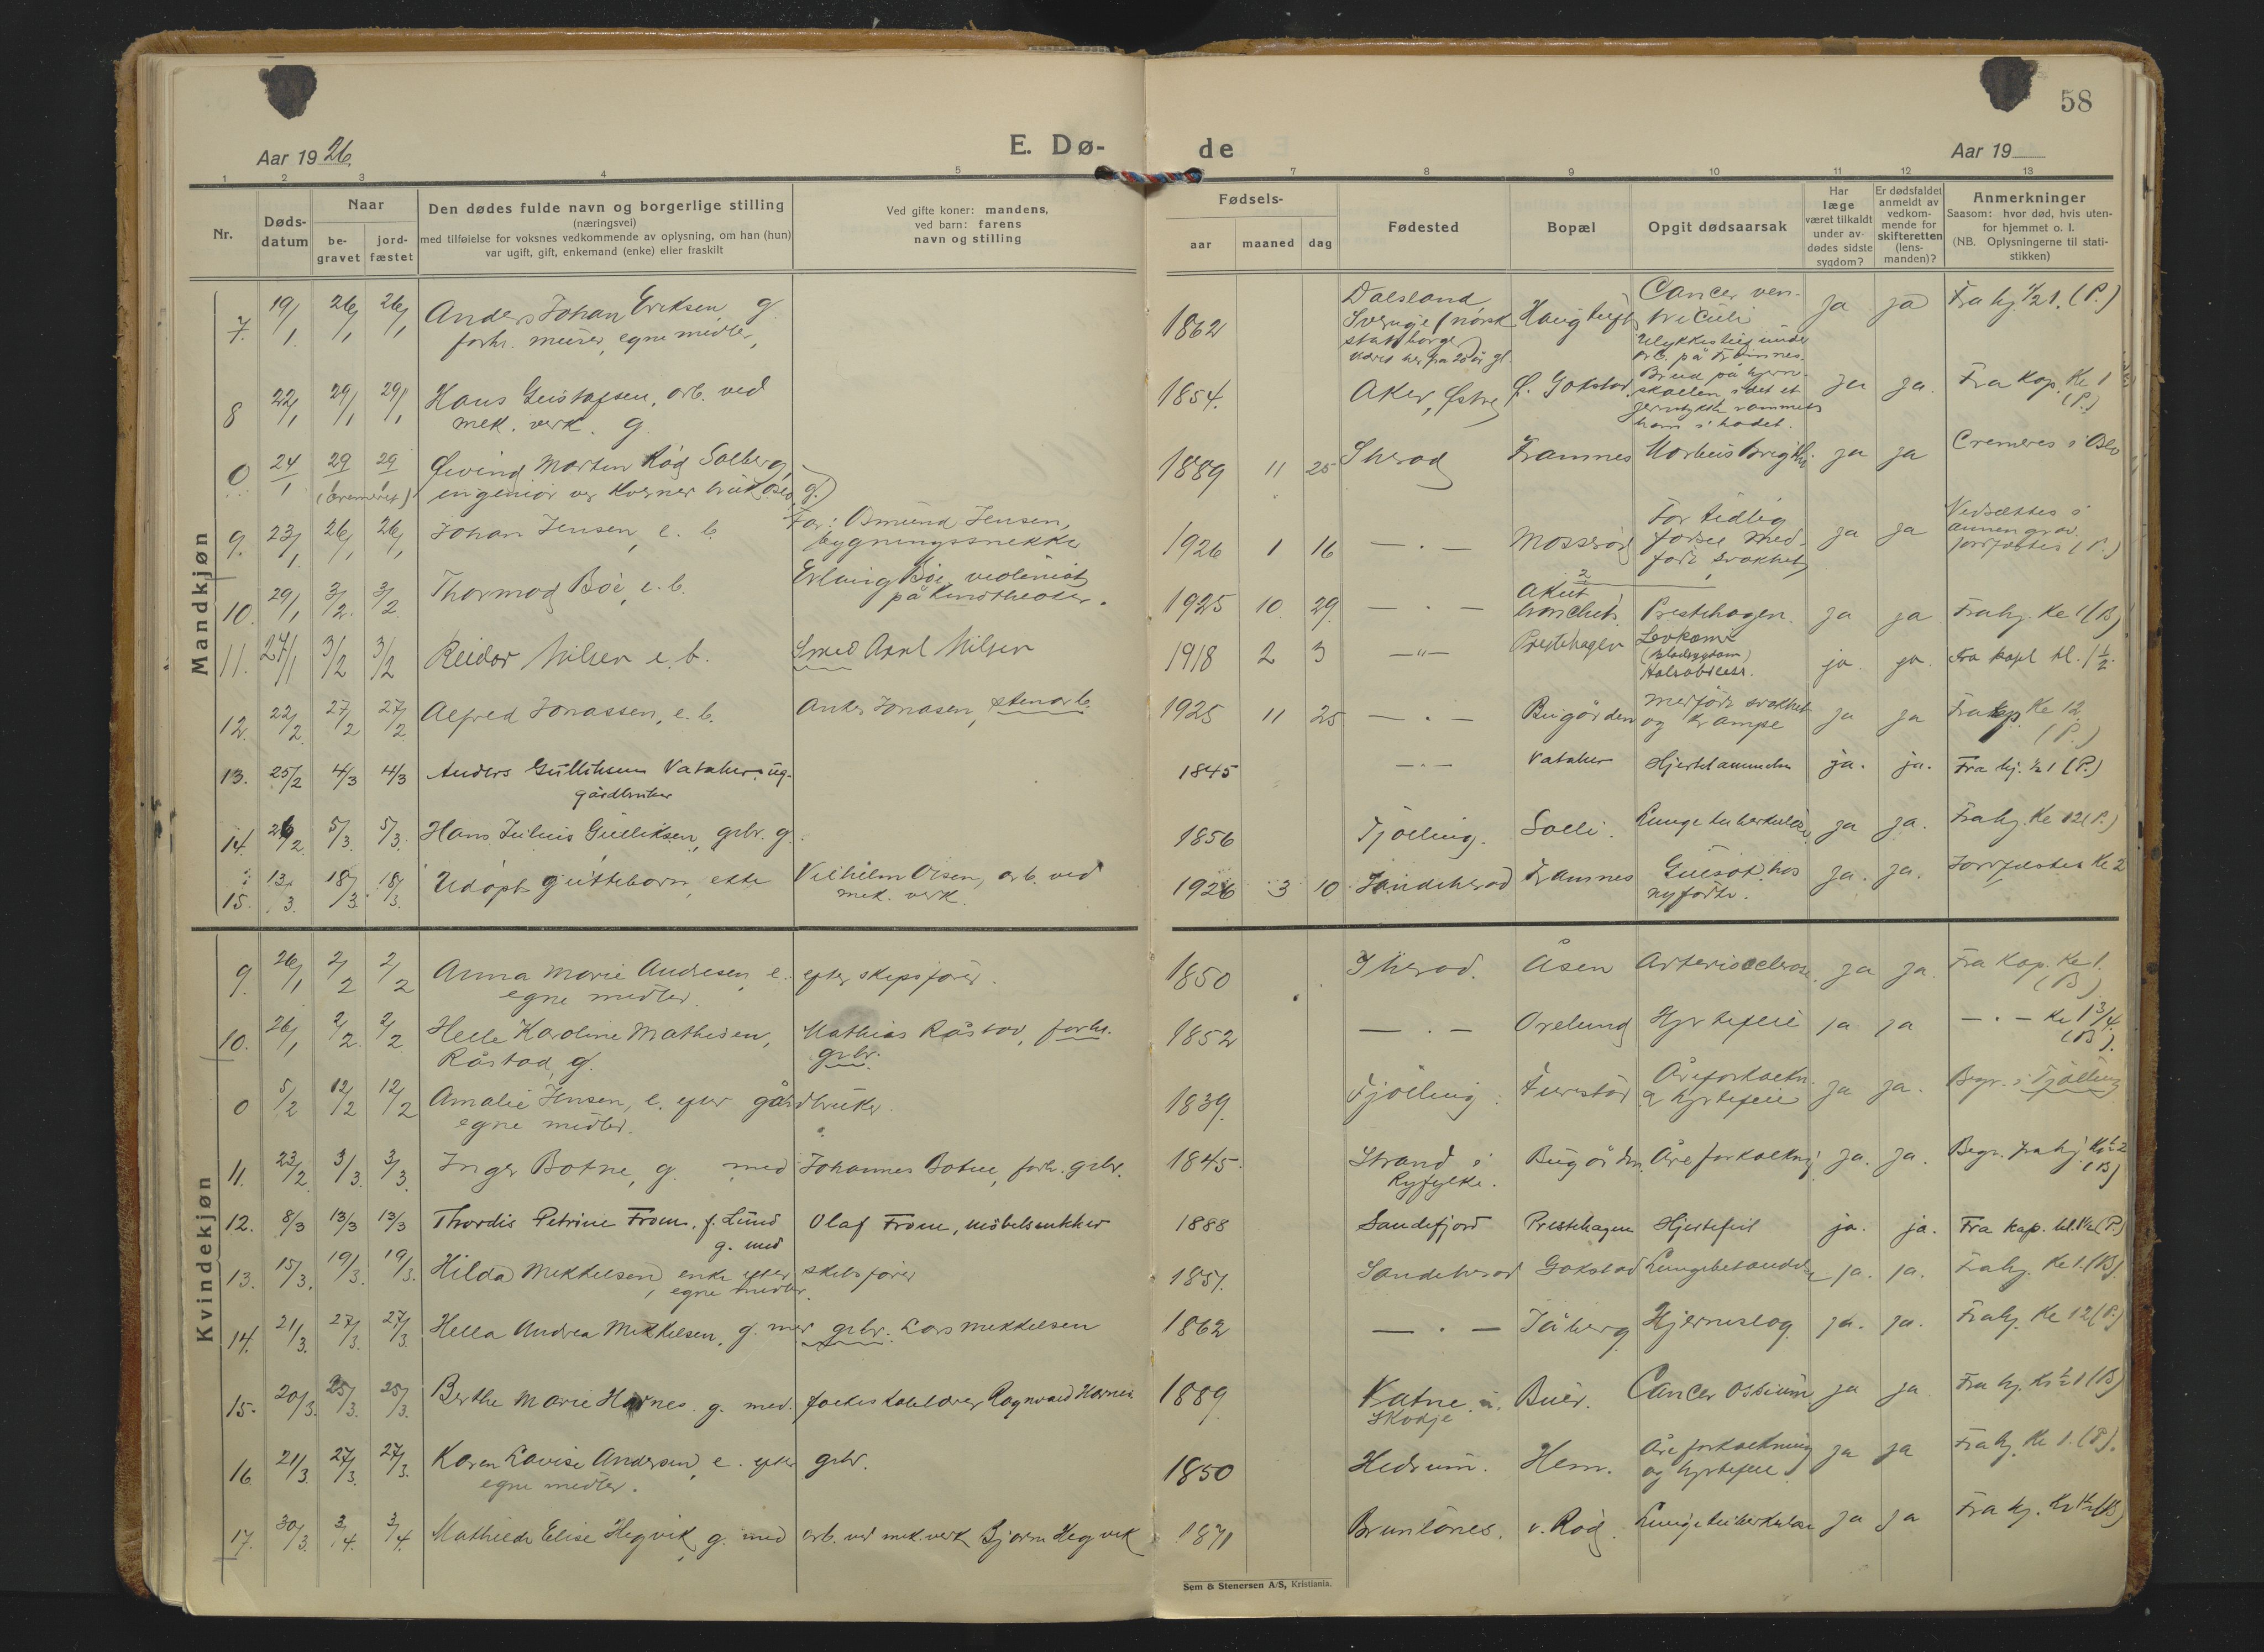 58
Aar 1926.
E. Dø-
de
Aar 19
1 2 3 4 5 7 8 9 10 11 12 13
Nr.
Døds-
datum
Naar
be-
gravet
jord-
fæstet
Den dødes fulde navn og borgerlige stilling
(næringsvei)
med tilføielse for voksnes vedkommende av oplysning, om han (hun)
var ugift, gift, enkemand (enke) eller fraskilt
Ved gifte koner: mandens,
ved barn: farens
navn og stilling
Fødsels-
aar maaned dag
Fødested
Bopæl
Opgit dødsaarsak
Har
læge
været tilkaldt
under av-
dødes sidste
sygdom?
Er dødsfaldet
anmeldt av
vedkom-
mende for
skifteretten
(lens-
manden)?
Anmerkninger
Saasom: hvor død, hvis uten-
for hjemmet o. l.
(NB. Oplysningerne til stati-
stikken)
Mandkjøn
7. 19/1. 26/1 26/1 Anders Johan Eriksen g.
forh. murer, egne midler,
1862 Dalsland
Sverige (norsk
statsborger
Haugtuft Cancer ven-
triculi ja ja Fra hj. 1/2 1. (P.)
8 22/1 29/1 29/1 Hans Gustafsen, arb. ved
mek. verk. g.
1854. Aker, Østre Ø. Gokstad, Ulykkestilf under
arb. på Framnes.
Brud på hjerne-
skallen, idet et
jernstykke rammet
ham i hodet. ja ja. Fra kap. Kl 1
(P.)
0 24/1 29/1 29/1 (Cremeret) Øivind Morten Rød Solberg,
ingeniør ved Kværner bruk Oslo, g.)
1889 11 25 Sherad Framnes Morbus Brigthi ja ja Cremeres i Oslo
9. 23/1. 26/1 26/1 Johan Jensen, e. b. Far: Osmund Jensen,
bygningssnekker
1926 1 16 — . — Mosserød For tidlig
fødsel med-
født svakhet ja ja Nedsættes i
annen grav.
jordfæstes (P.)
10. 29/1 3/2. 3/2. Thormod Bøe, e. b. Erling Bøe, violinist
på kinotheater.
1925 10 29 — . — Akut
bronchit. Prestehagen. ja ja Fra hj. Kl 1 (B)
11. 27/1 3/2 3/2 Reidar Nilsen e. b. Smed Axel Nilsen
1918 2 3 — " — Prestehagen Levkæmi
(Blodsygdom)
Halsabscess. ja. ja. Fra kapl kl. 1 1/2.
12. 22/2. 27/2 27/2. Alfred Jonassen, e. b. Anker Jonasen, stenarb.
1925 11 25 — . — Bugården Medfødt svakhet
og krampe ja ja Fra kap. Kl 12.
(P.)
13. 25/2 4/3 4/3 Anders Gulliksen Vataker, ug-
gårdbruker
1845 — . — Vataker Hjertelammelse ja. ja. Fra hj. 1/2 1 (P.)
14. 26/2. 5/3. 5/3. Hans Julius Gulliksen, grbr. g.
1856 Tjølling. Solli. Lungetuberkulose ja ja. Fra hj. Kl 12 (P.)
15. 13/3. 18/3. 18/3. Udøpt guttebarn, ekte Vilhelm Olsen, arb. ved
mek. verk.
1926 3 10 Sandeherad Framnes Gulsot hos
nyfødte. ja. ja. Jordfæstes Kl 2
Kvindekjøn
9. 26/1 2/2 2/2 Anna Marie Andresen, e. efter skipsfører.
egne midler.
1850 Sherad. Åsen Arteriosclerose ja ja. Fra Kap. Kl 1.
(B)
10. 26/1 2/2. 2/2. Helle Karoline Mathisen,
Råstad, g. Mathias Råstad, forh.
grbr.
1852 — . — Orelund Hjertefeil ja ja — . — Kl 1 3/4.
(B).
0 5/2 12/2 12/2 Amalie Jensen, e. efter gårdbruker.
egne midler.
1839. Tjølling. Furstad Åreforkalkn.
og hjertefeil ja ja. Begr. i Tjølling
11. 23/2. 3/3. 3/3. Inger Botne, g. med Johannes Botne, forh. grbr.
1845. Strand i
Ryfylke. Bugården. Åreforkalkning ja. ja. Begr. fra hj. Kl 1/2 2
(B)
12. 8/3 13/3 13/3 Thordis Petrine From, f. Lund
g. med Olaf From, møbelsnekker
1888 Sandefjord Prestehagen Hjertefeil ja. ja. Fra kap. kl. 1/2 (P.)
13. 15/3. 19/3. 19/3. Hilda Mikkelsen, enke efter skibsfører
egne midler.
1851. Sandeherad Gokstad Lungebetændelse ja. ja. Fra hj. Kl 1. (B).
14. 21/3. 27/3. 27/3. Hella Andrea Mikkelsen, g. med grbr. Lars Mikkelsen
1862 — . — Jåberg Hjerneslag ja. ja. Fra hj. Kl 12 (P.)
15. 20/3. 25/3. 25/3. Berthe Marie Harnes. g. med. folkeskolelærer Ragnvald Harnes
1889 Vatne i.
Skodje Buer. Cancer ossium ja ja Fra hj. Kl 1/2 1 (B)
16. 21/3. 27/3. 27/3. Karen Lovise Andersen, e. efter grbr.
egne midler.
1850 Hedrum. Hem. Åreforkalkning
og hjertefeil. ja ja Fra hj. Kl 1. (P).
17. 30/3. 3/4. 3/4. Mathilde Elise Hegvik, g. med arb. ved mek. verk Bjarne Hegvik
1871 Brunlanes. v. Rød. Lungetuberkulose ja ja Fra hj. Kl 1/2 (B)
Sem & Stenersen A/S, Kristiania.